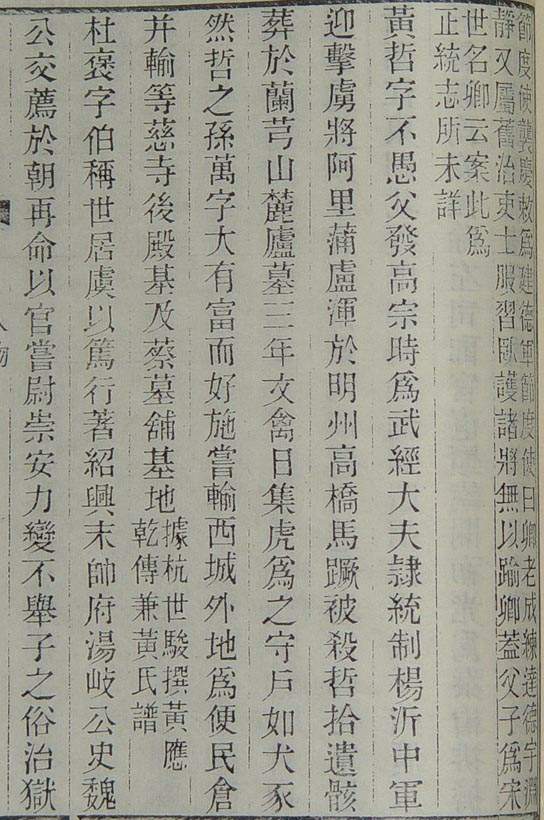 節度使龔慶敕爲建德軍節度使曰卿老成練達德宇淵
靜又屬舊治吏士服習臥護諸將無以踰卿蓋父子爲宋
世名卿云案此爲
正統志所未詳
黃哲字不愚父發高宗時爲武經大夫隷統制楊沂中軍
迎擊虜將阿里蒲盧渾於明州高橋馬蹶被殺哲拾遺骸
葬於蘭芎山麓廬墓三年文禽日集虎爲之守戶如犬豕
然哲之孫萬字大有富而好施嘗輸西城外地爲便民倉
并輸等慈寺後殿基及蔡墓舖基地
據杭世駿撰黃應
乾傳兼黃氏譜
杜褒字伯稱世居虞以篤行著紹興末帥府湯岐公史魏
公交薦於朝再命以官嘗尉崇安力變不舉子之俗治獄